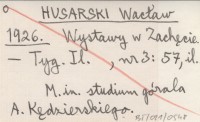 HUSARSKI Wacław
1926. Wystawy w Zachęcie.
— Tyg. Il., nr 3: 57, il.
M. in. studium górala
A. Kędzierskiego.